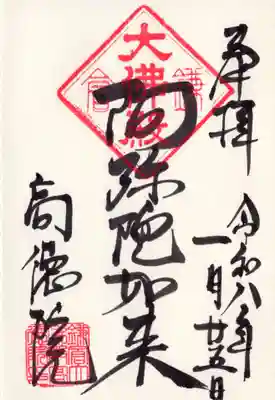 奉拝
令和八年
一月廿五日
大佛殿
阿弥陀如来
高徳院